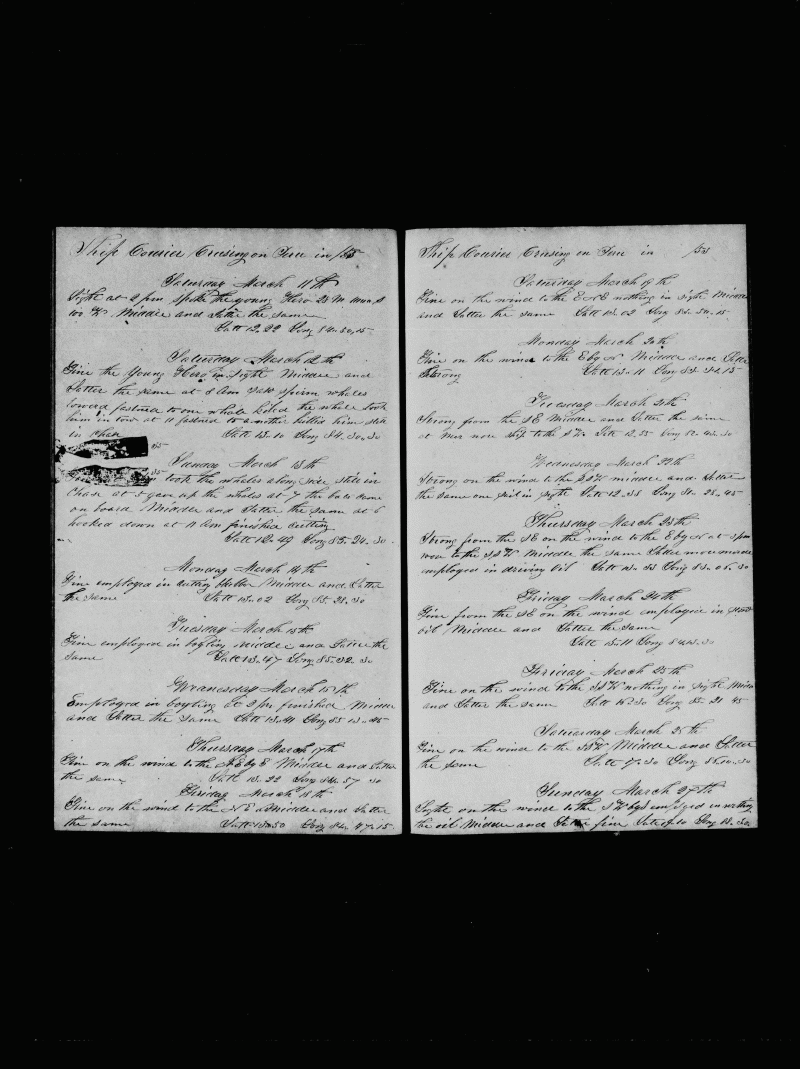 Ship Courier Cruising on Line in /55
Saturday March 11th
Light at 2 pm Spoke the young Hero 23 M
100 W Middle and Latter the same
Latt 12.22 Long 84.50.15
Saturday March 12th
Fine the Young Hero in Sight Middle and
Latter the same at 8 Am saw sperm whales
loward fastned to one whale killed the whale took
him in tow at 11 fastned to another killed him still
in Chase Latt 13.10 Long 84.30.30
Sunday March 13th
took the whales along side still in
Chase at 5 gave up the whales at 7 the boats came
on board Middle and Latter the same at 6
hooked down at 11 Am finished cutting
Latt 12.49 Long 85.24.30
Monday March 14th
Fine employed in cutting Middle and Latter
the same Latt 13.02 Long 85.23.30
Tuesday March 15th
Fine employed in boyling middle and Latter the
same Latt 13.47 Long 85.02.30
Wednesday March 15th
Employed in boyling at 2 pm finished Middle
and Latter the same Latt 13.41 Long 85.13.45
Thursday March 17th
Fine on the wind to the N E by E Middle and Latter
the same Latt 13.22 Long 84.57.30
Friday March 18th
Fine on the wind to the N E Middle and Latter
the same Latt 13.50 Long 84.47.15
Ship Courier Cruising on Line in /55
Saturday March 19th
Fine on the wind to the E N E nothing in sight Middle
and Latter the same Latt 13.02 Long 83.54.15
Monday March 20th
Fine on the wind to the E by N Middle and Latter
Strong Latt 13.11 Long 83.32.15
Tuesday March 21th
Strong from the SE Middle and Latter the same
at ship to the S W Latt 12.55 Long 82.43.30
Wednesday March 22th
Strong on the wind to the S S W middle and Latter
the same one sail in sight Latt 12.35 Long 81.28.45
Thursday March 23th
Strong from the SE on the wind to the E by N at 3 pm
wore to the S S W Middle the same Latter more moderate
employed in driving Oil Latt 13.33 Long 83.05.30
Friday March 24th
Fine from the SE on the wind employed in
oil Middle and Latter the same
Latt 13.11 Long
Friday March 25th
Fine on the wind to the S S W nothing in sight Middle
and Latter the same Latt 15.30 Long 85.21.45
Saturday March 25th
Fine on the wind to the S S W Middle and Latter
the same Latt 17.30 Long
Sunday March 27th
Light on the wind to the S W by S employed in wetting
the oil Middle and Latter fine Latt Long